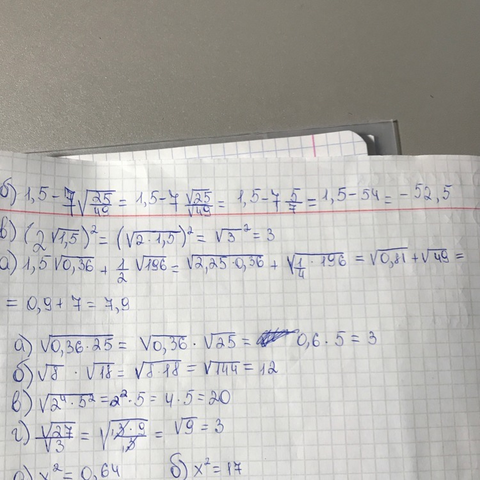 б) 1,5-7√25/49 = 1,5-7 √25/√49 = 1,5-7 5/7 = 1,5-54 = -52,5
в) (2√1,5)² = (√2·1,5)² = √3² = 3
а) 1,5√0,36 + 1/2 √196 = √2,25·0,36 + √1/4·196 = √0,81 + √49 =
= 0,9+7 = 7,9
а) √0,36·25 = √0,36 · √25 = 0,6·5 = 3
б) √8 · √18 = √8·18 = √144 = 12
в) √2⁴·5² = 2²·5 = 4·5 = 20
г) √27/√3 = √3·9/3 = √9 = 3
а) x² = 0,64 б) x² = 17